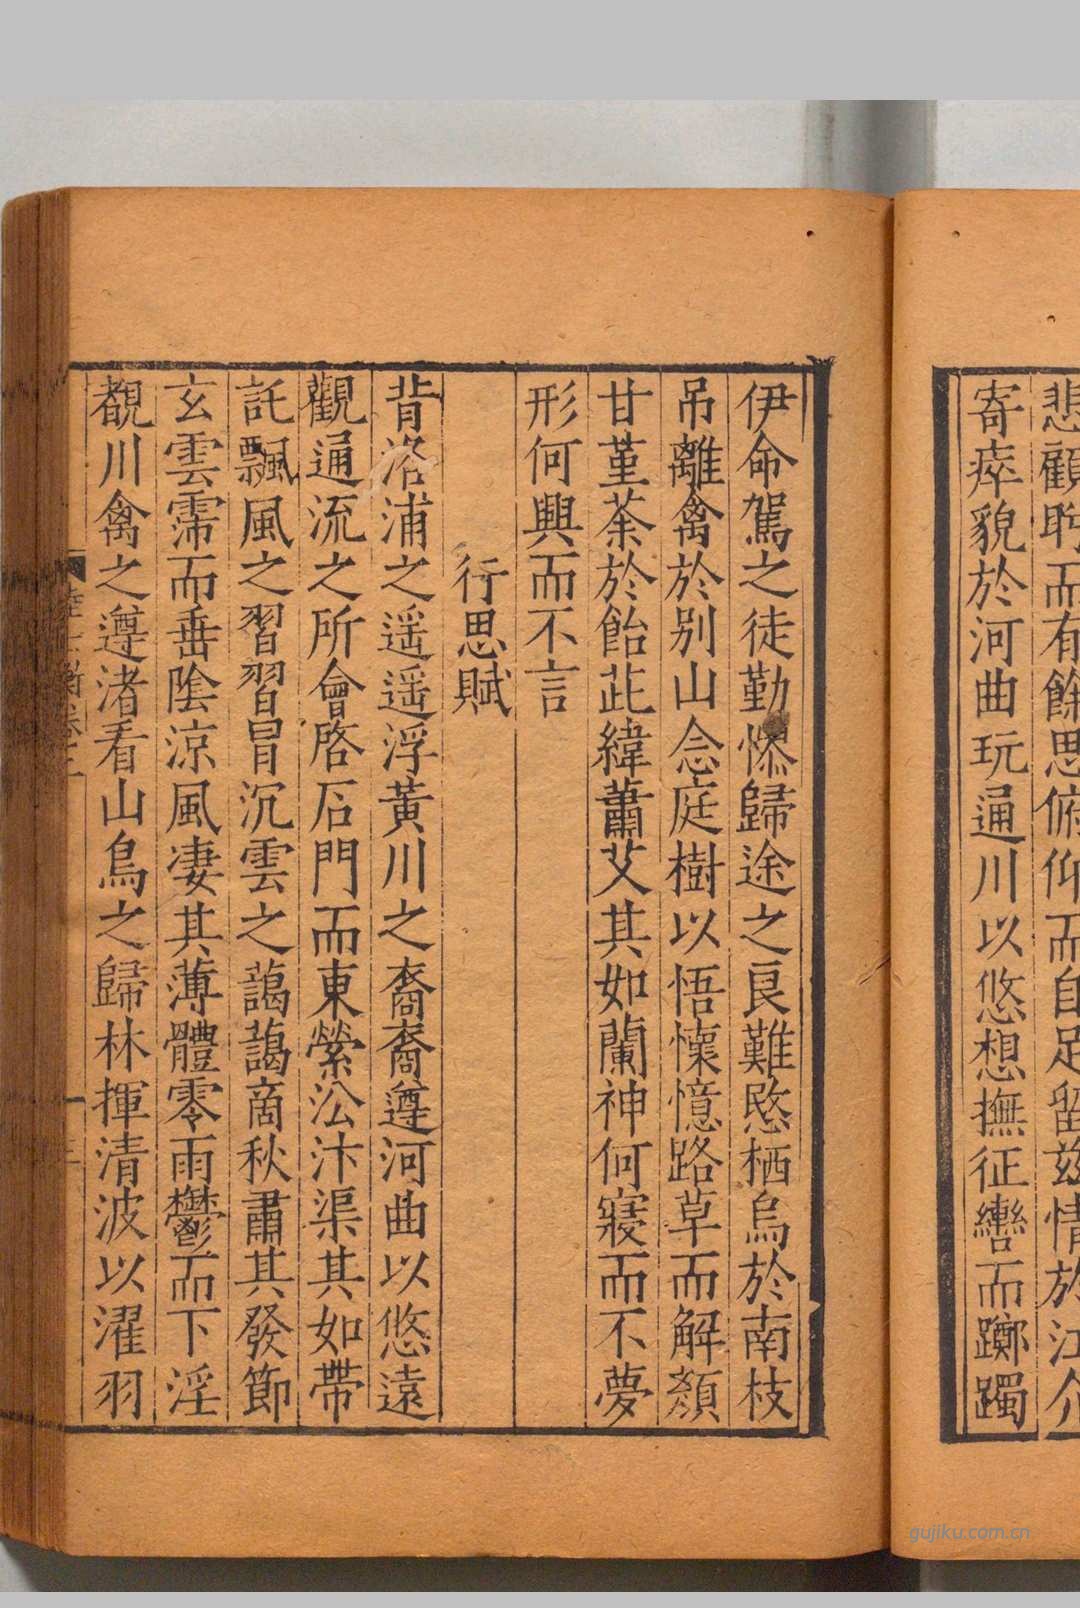 悲顧眄而有餘思俯仰而自足留兹情於江介
寄瘁貌於河曲玩通川以悠想撫征轡而躑躅
伊命駕之徒勤慘歸途之良難愍栖鳥於南枝
吊離禽於别山念庭樹以悟懷憶路草而解顏
甘堇荼於飴茈緯蕭艾其如蘭神何寢而不夢
形何興而不言
行思賦
背洛浦之遥遥浮黃川之裔裔遵河曲以悠遠
觀通流之所會啓石門而東縈沿汴渠其如帶
託飄風之習習冒沉雲之藹藹商秋肅其發節
玄雲霈而垂陰涼風凄其薄體零雨鬱而下淫
覩川禽之遵渚看山鳥之歸林揮清波以濯羽
陸士衡卷二
gujiku.com.cn